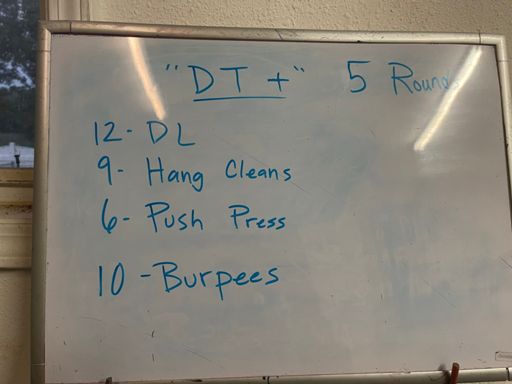 "DT+" 5 Rounds
12- DL
9- Hang Cleans
6- Push Press
10 - Burpees